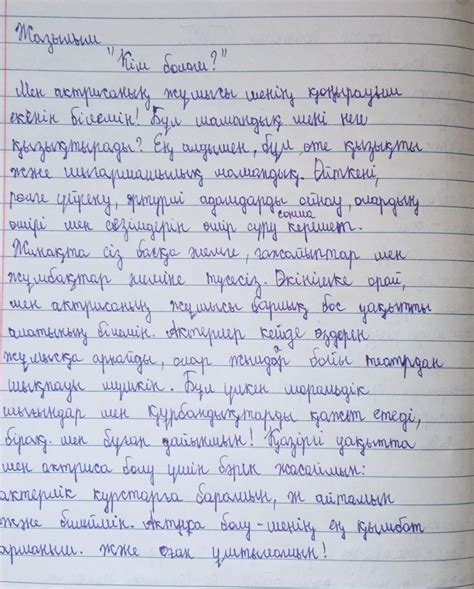 Жазылым
"Кім болам?"
Мен актрисаның жұмысы менің қоңырауым
екенін білемін! Бұл мамандық мені неге
қызықтырады? Ең алдымен, бұл өте қызықты
және шығармашылық мамандық. Өйткені,
рөлге үйрену, әртүрлі адамдарды ойнау, олардың
өмірі мен сезімдерін өмір сүру сонша керімет.
Жинақта сіз басқа әлемге, ғажайыптар мен
жұмбақтар әлеміне түсесіз. Өкінішке орай,
мен актрисаның жұмысы барлық бос уақытты
алатының білемін. Актерлер кейде өздерен
жұмысқа арнайды, олар жылдар бойы театрдан
шықпауы мүмкін. Бұл үлкен моральдік
шығындар мен құрбандықтарды қажет етеді,
бірақ мен бұған дайынмын! Қазіргі уақытта
мен актриса болу үшін бәрін жасаймын:
актерлік курстарға барамын, ән айтамын
және билеймін. Актриса болу - менің ең қымбат
арманым. және оған ұмтыламын!